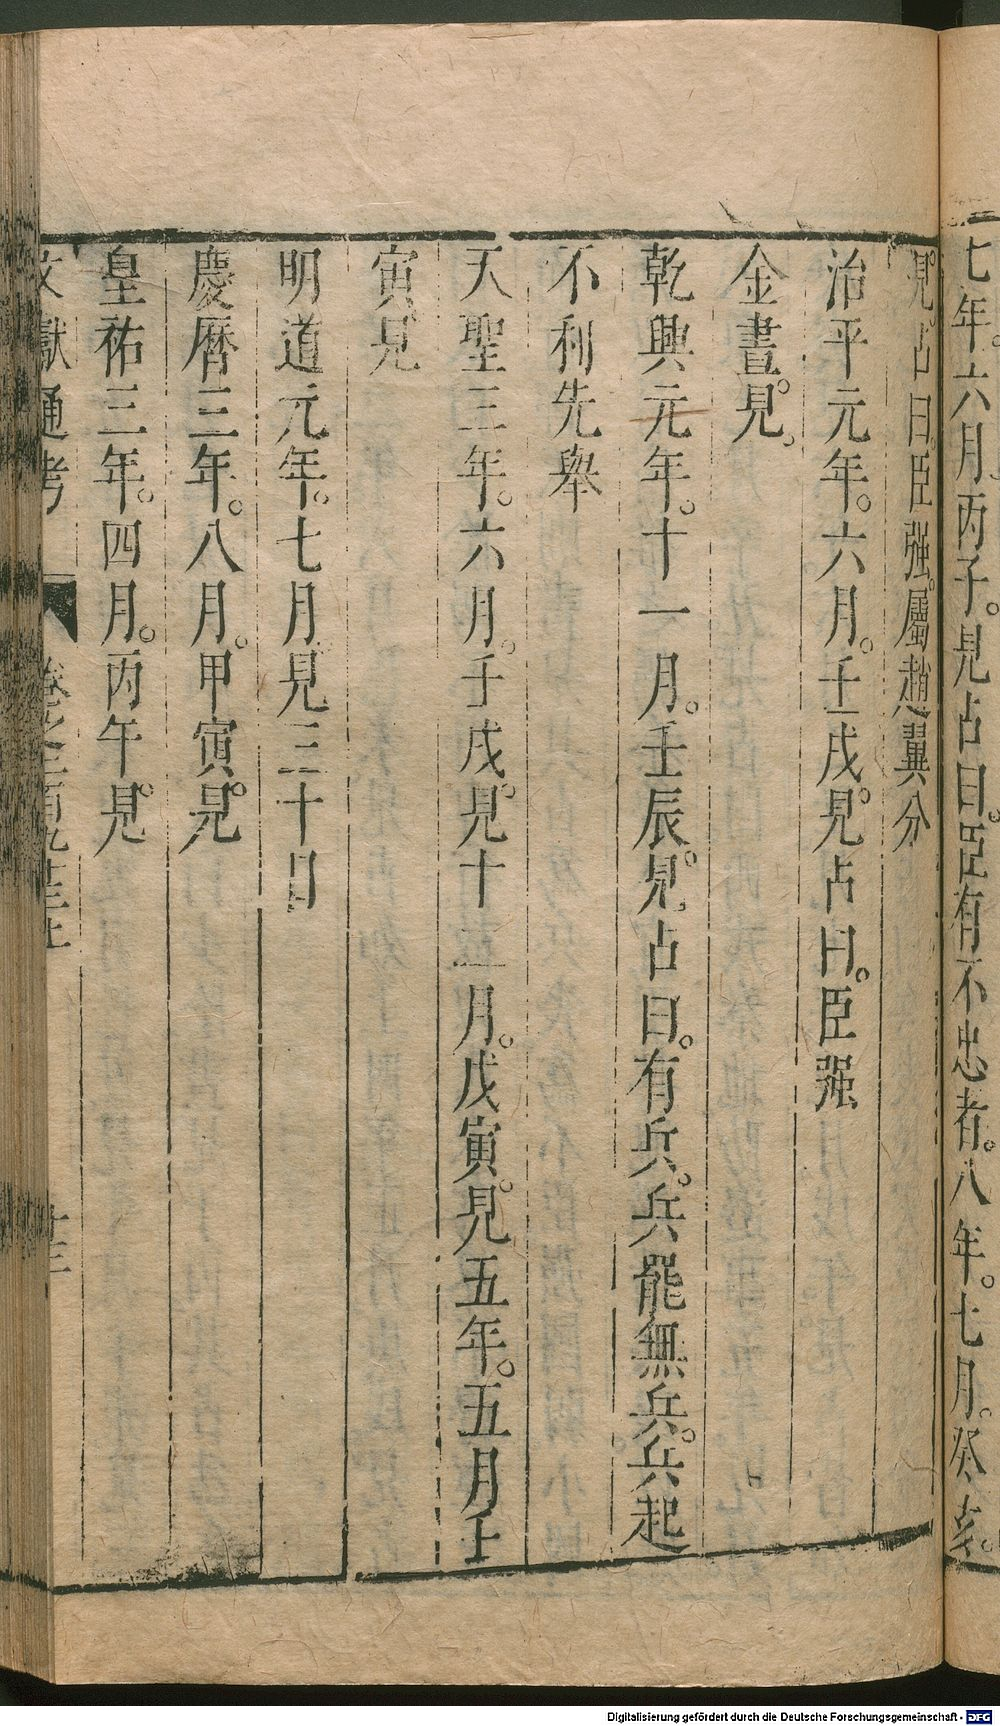 七年。六月丙子。見占曰。臣有不忠者。八年。七月。癸亥。
見。占曰臣强。屬趙翼分
治平元年。六月。壬戌。見占曰。臣强
金晝。見。
乾興元年。十一月。壬辰。見。占曰。有兵。兵罷無兵。兵起
不利先舉
天聖三年。六月。壬戌。見十一月。戊寅。見五年。五月壬
寅見
明道元年。七月見三十日
慶曆三年。八月。甲寅。見
皇祐三年。四月。丙午。見
文獻通考 卷之二百九十三上 十三
Digitalisierung gefördert durch die Deutsche Forschungsgemeinschaft - DFG